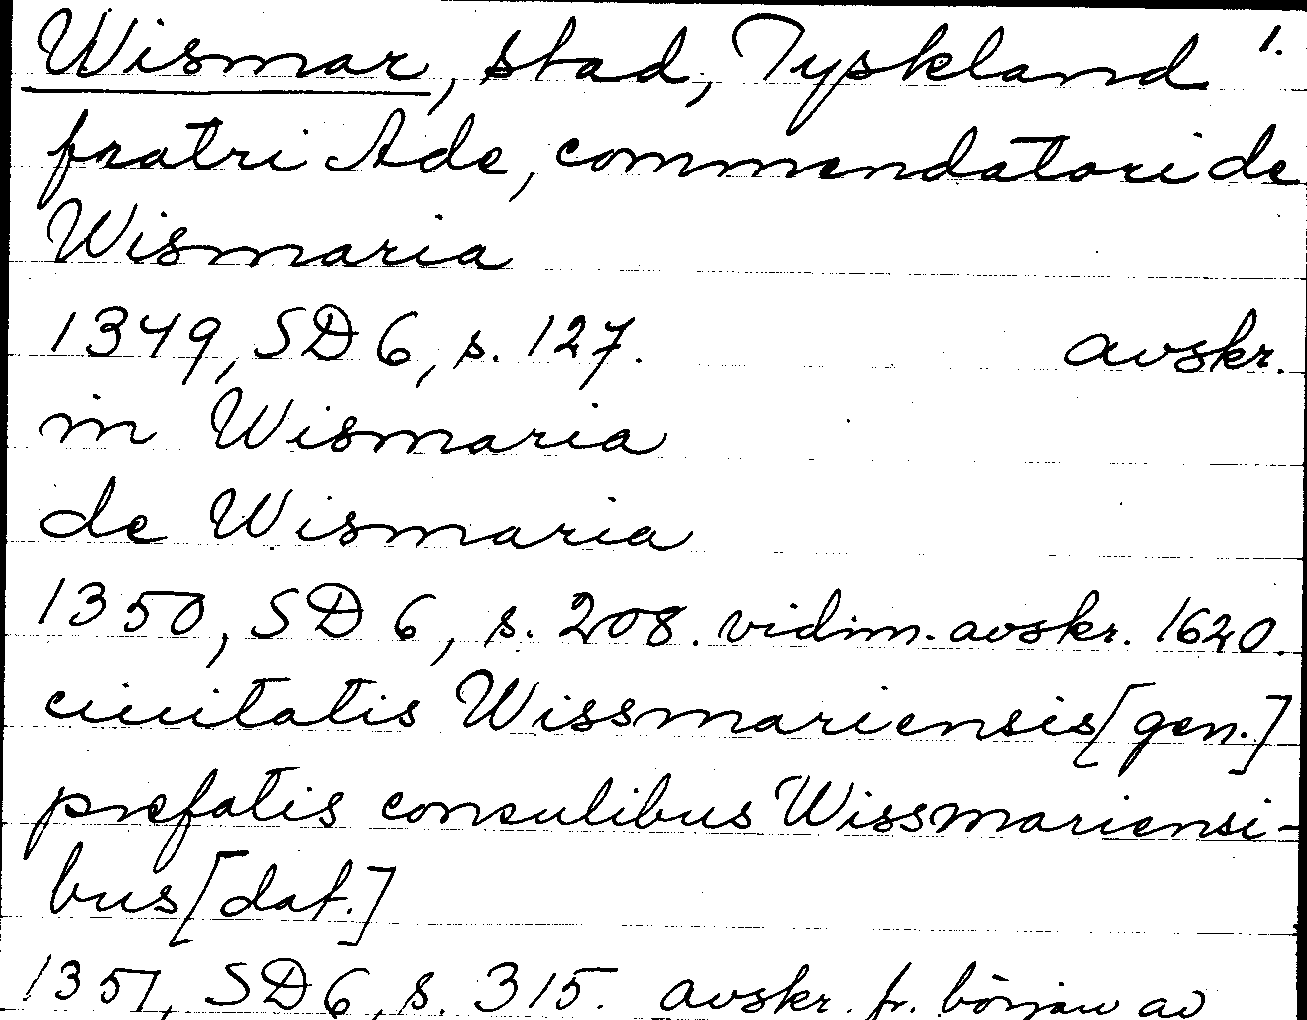 Wismar, stad, Tyskland 1.
fratri Ade, commendatori de
Wismaria
1349, SD 6, s. 127. avskr.
in Wismaria
de Wismaria
1350, SD 6, s. 208. vidim. avskr. 1620.
ciuitatis Wissmariensis [gen.]
prefatis consulibus Wissmariensi-
bus [dat.]
1351, SD 6, s. 315. avskr. fr. början av